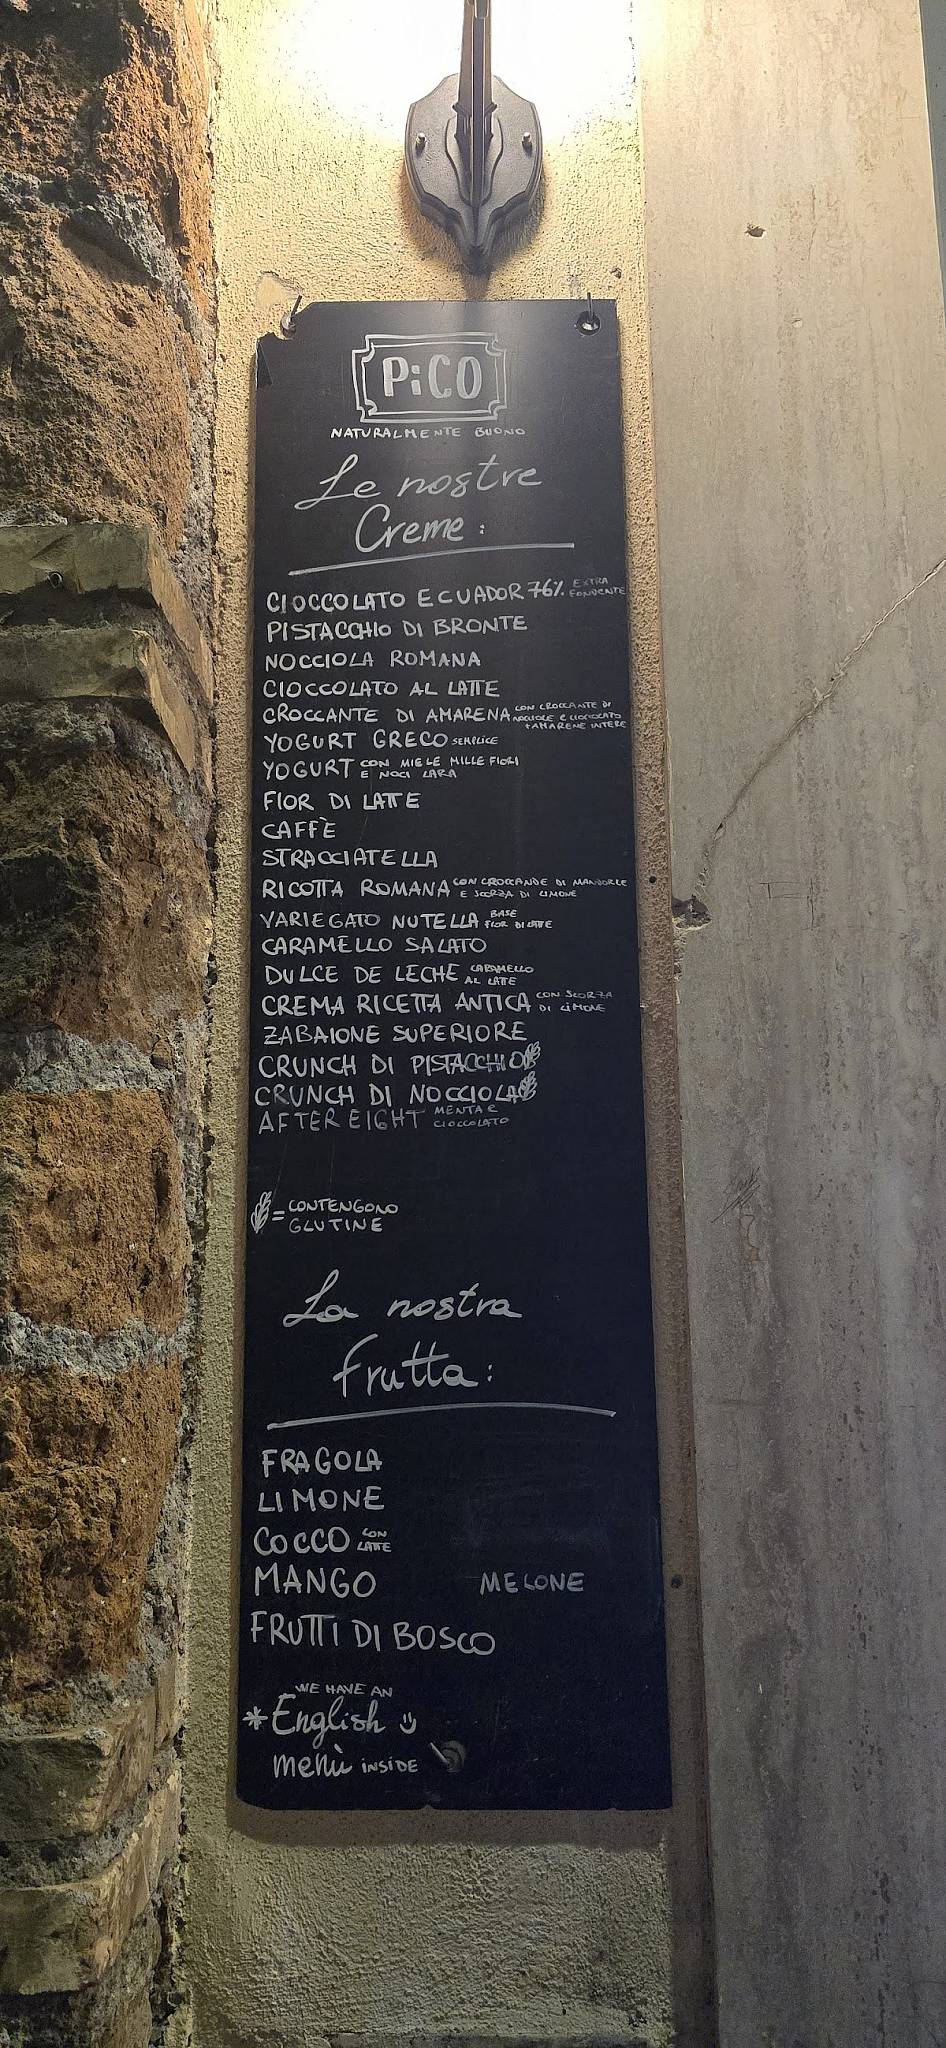 PiCO
NATURALMENTE BUONO
Le nostre
Creme:
CIOCCOLATO ECUADOR 76% EXTRA FONDENTE
PISTACCHIO DI BRONTE
NOCCIOLA ROMANA
CIOCCOLATO AL LATTE
CROCCANTE DI AMARENA CON CROCCANTE DI NOCCIOLE E CIOCCOLATO + AMARENE INTERE
YOGURT GRECO SEMPLICE
YOGURT CON MIELE MILLE FIORI E NOCI LARA
FIOR DI LATTE
CAFFÈ
STRACCIATELLA
RICOTTA ROMANA CON CROCCANDE DI MANDORLE E SCORZA DI LIMONE
VARIEGATO NUTELLA BASE FIOR DI LATTE
CARAMELLO SALATO
DULCE DE LECHE CARAMELLO AL LATTE
CREMA RICETTA ANTICA CON SCORZA DI LIMONE
ZABAIONE SUPERIORE
CRUNCH DI PISTACCHIO
CRUNCH DI NOCCIOLA
AFTER EIGHT MENTA E CIOCCOLATO
= CONTENGONO
GLUTINE
La nostra
frutta:
FRAGOLA
LIMONE
COCCO CON LATTE
MANGO MELONE
FRUTTI DI BOSCO
WE HAVE AN
* English
menù INSIDE